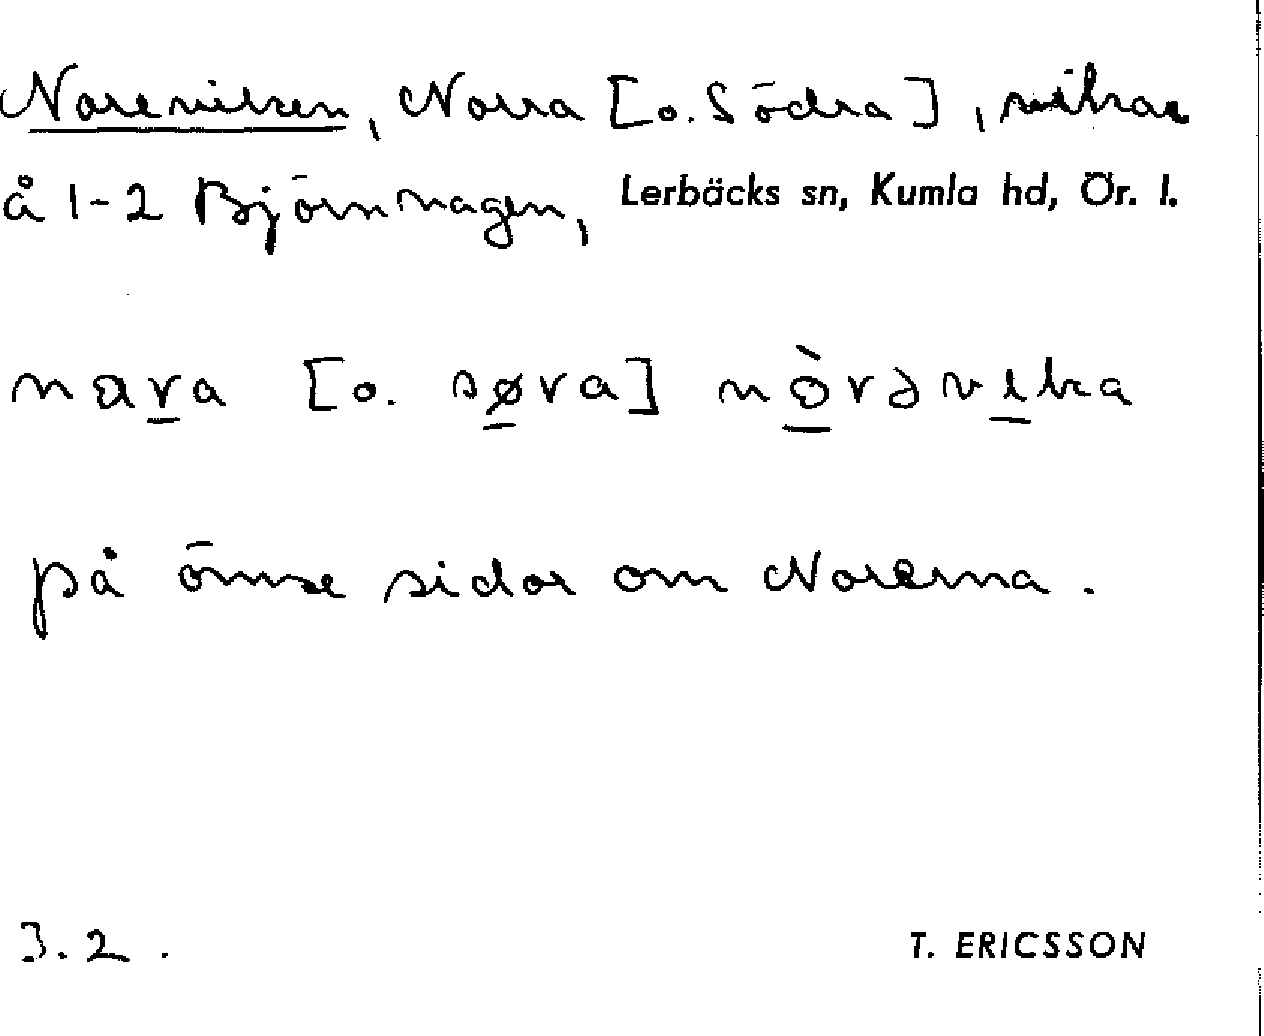 Noreviken, Norra [o. Södra], vikar
å 1-2 Björnhagen, Lerbäcks sn, Kumla hd, Ör. l.
nara [o. søra] nòrəvika
på ömse sidor om Norerna.
3.2.
T. ERICSSON